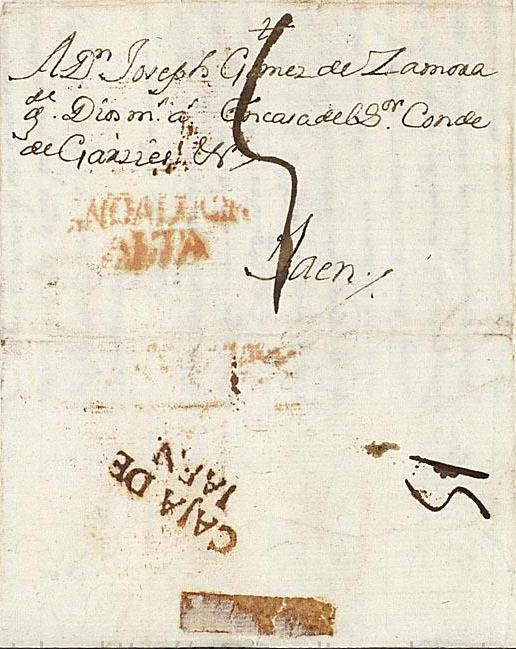 A Dn Joseph Gomez de Zamora
q. Dios ms. as. En casa del Sor. Conde
de Garzíes &a
Jaen
ANDALUCIA
ALTA
CAJA DE
JAEN.